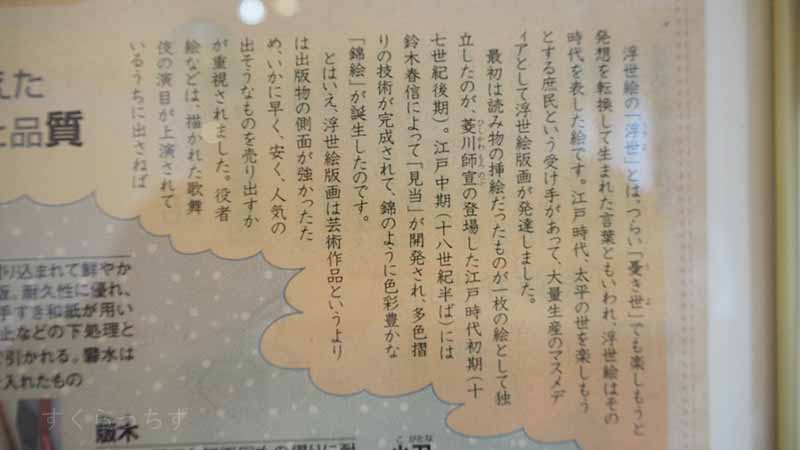 浮世絵の「浮世」とは、つらい「憂き世」でも楽しもうと
発想を転換して生まれた言葉ともいわれ、浮世絵はその
時代を表した絵です。江戸時代、太平の世を楽しもう
とする庶民という受け手があって、大量生産のマスメデ
ィアとして浮世絵版画が発達しました。
最初は読み物の挿絵だったものが一枚の絵として独
立したのが、菱川師宣の登場した江戸時代初期(十
七世紀後期)。江戸中期(十八世紀半ば)には
鈴木春信によって「見当」が開発され、多色摺
りの技術が完成されて、錦のように色彩豊かな
「錦絵」が誕生したのです。
とはいえ、浮世絵版画は芸術作品というより
は出版物の側面が強かったた
め、いかに早く、安く、人気の
出そうなものを売り出すか
が重視されました。役者
絵などは、描かれた歌舞
伎の演目が上演されて
いるうちに出さねば
えた
品質
込まれて鮮やか
版。耐久性に優れ、
手すき和紙が用い
止などの下処理と
引かれる。礬水は
入れたもの
版木
こがたな
小刀
すくらっちず